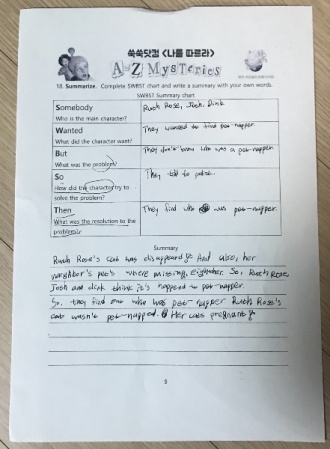 쑥쑥닷컴 <나를 따르라>
A to Z MYSTERIES
18. Summarize. Complete SWBST chart and write a summary with your own words.
SWBST Summary chart
Somebody
Who is the main character?
Ruth Rose, Josh, Dink
Wanted
What did the character want?
They wanted to find pet-napper
But
What was the problem?
They don't know who was a pet-napper
So
How did the character try to solve the problem?
They told to police.
Then
What was the resolution to the problem?
They find who was pet-napper.
Summary
Ruth Rose's cat was disappeard. And also, her
neighbor's pets where missing, eighther. So, Ruth Rose,
Josh and dink think it's happend to pet-napper.
So, they find out who was pet-napper Ruth Rose's
cat wasn't pet-napped. Her cats pregnant
9